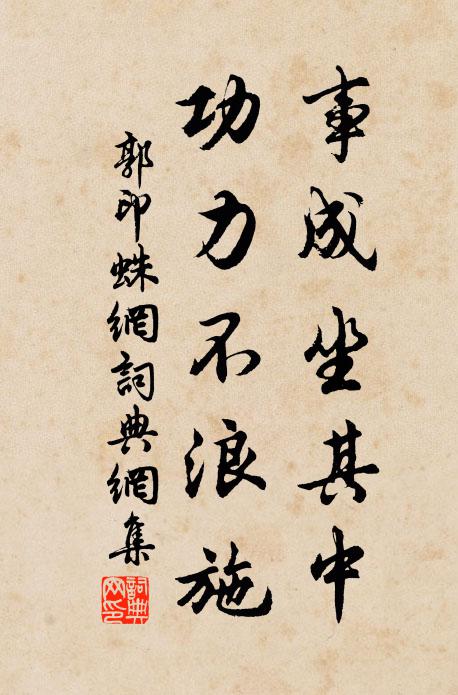 事成坐其中
功力不浪施
郭印蛛網詞典網集
詞典網印